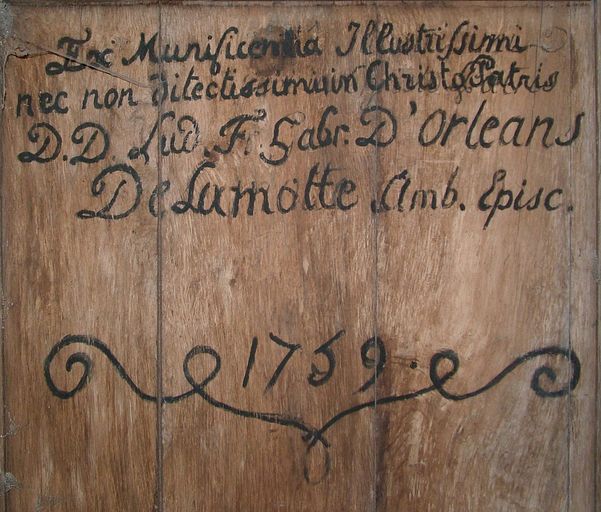 Ex Munificentia Illustrissimi
nec non dilectissimi in Christo Patris
D.D. Lud. F. Gabr. D'Orleans
De Lamotte Amb. Episc.
1759.